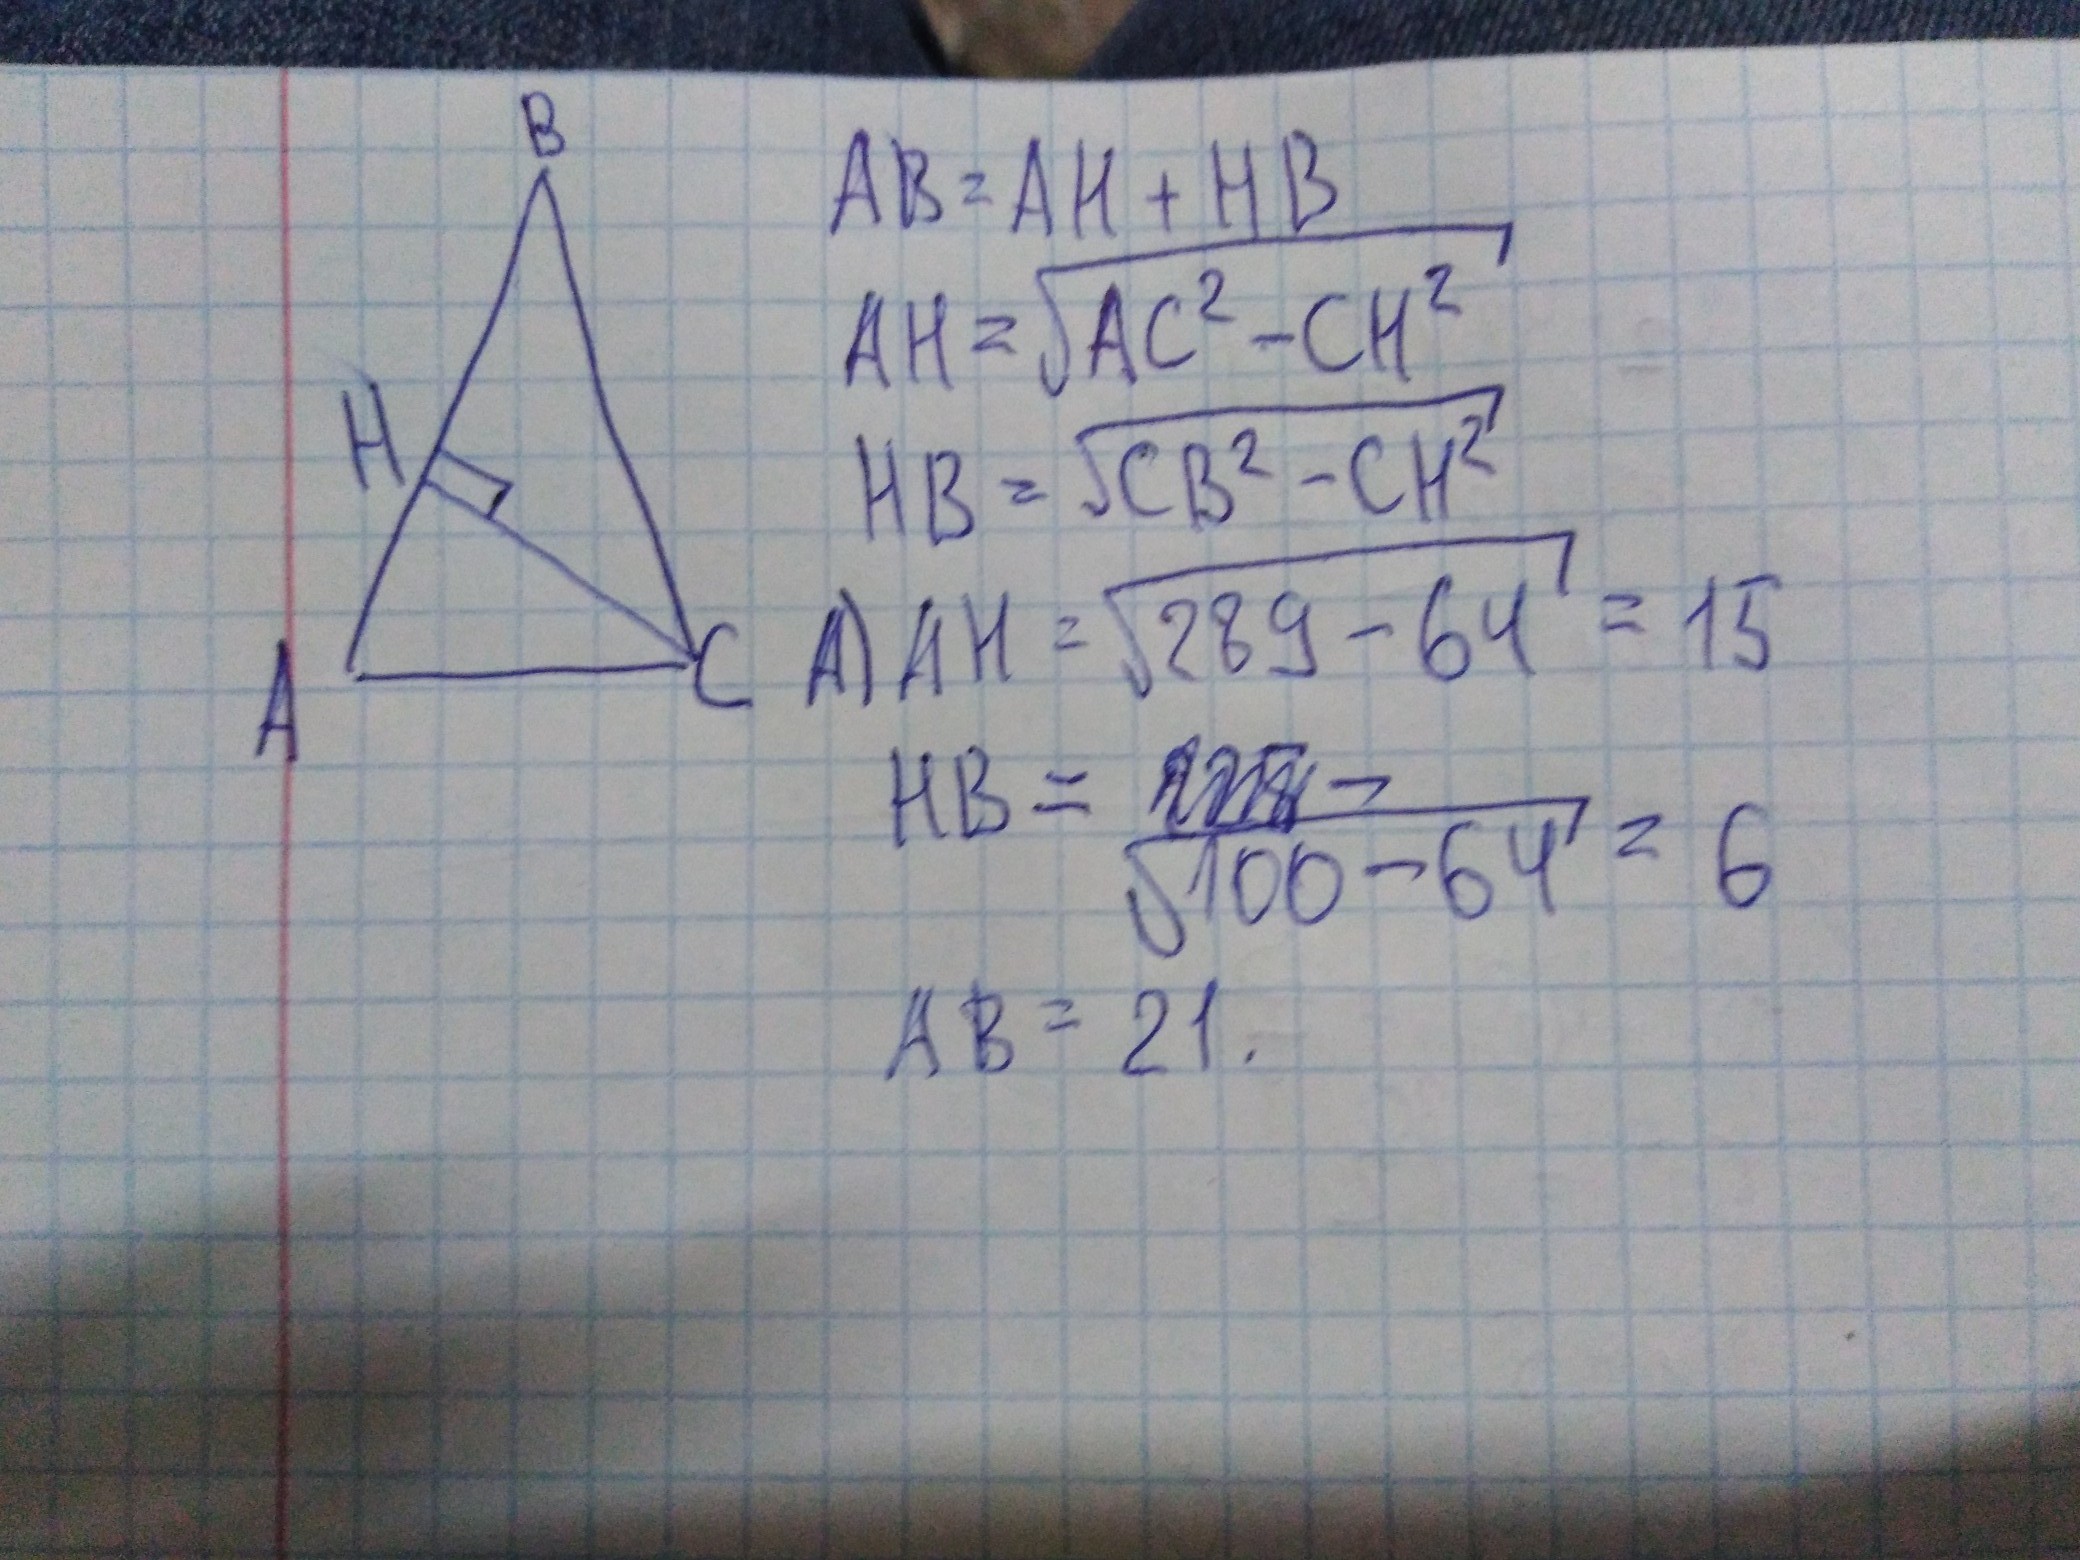 B
H
A
C
AB = AH + HB
AH = √AC² - CH²
HB = √CB² - CH²
А) AH = √289 - 64 = 15
HB =
√100 - 64 = 6
AB = 21.